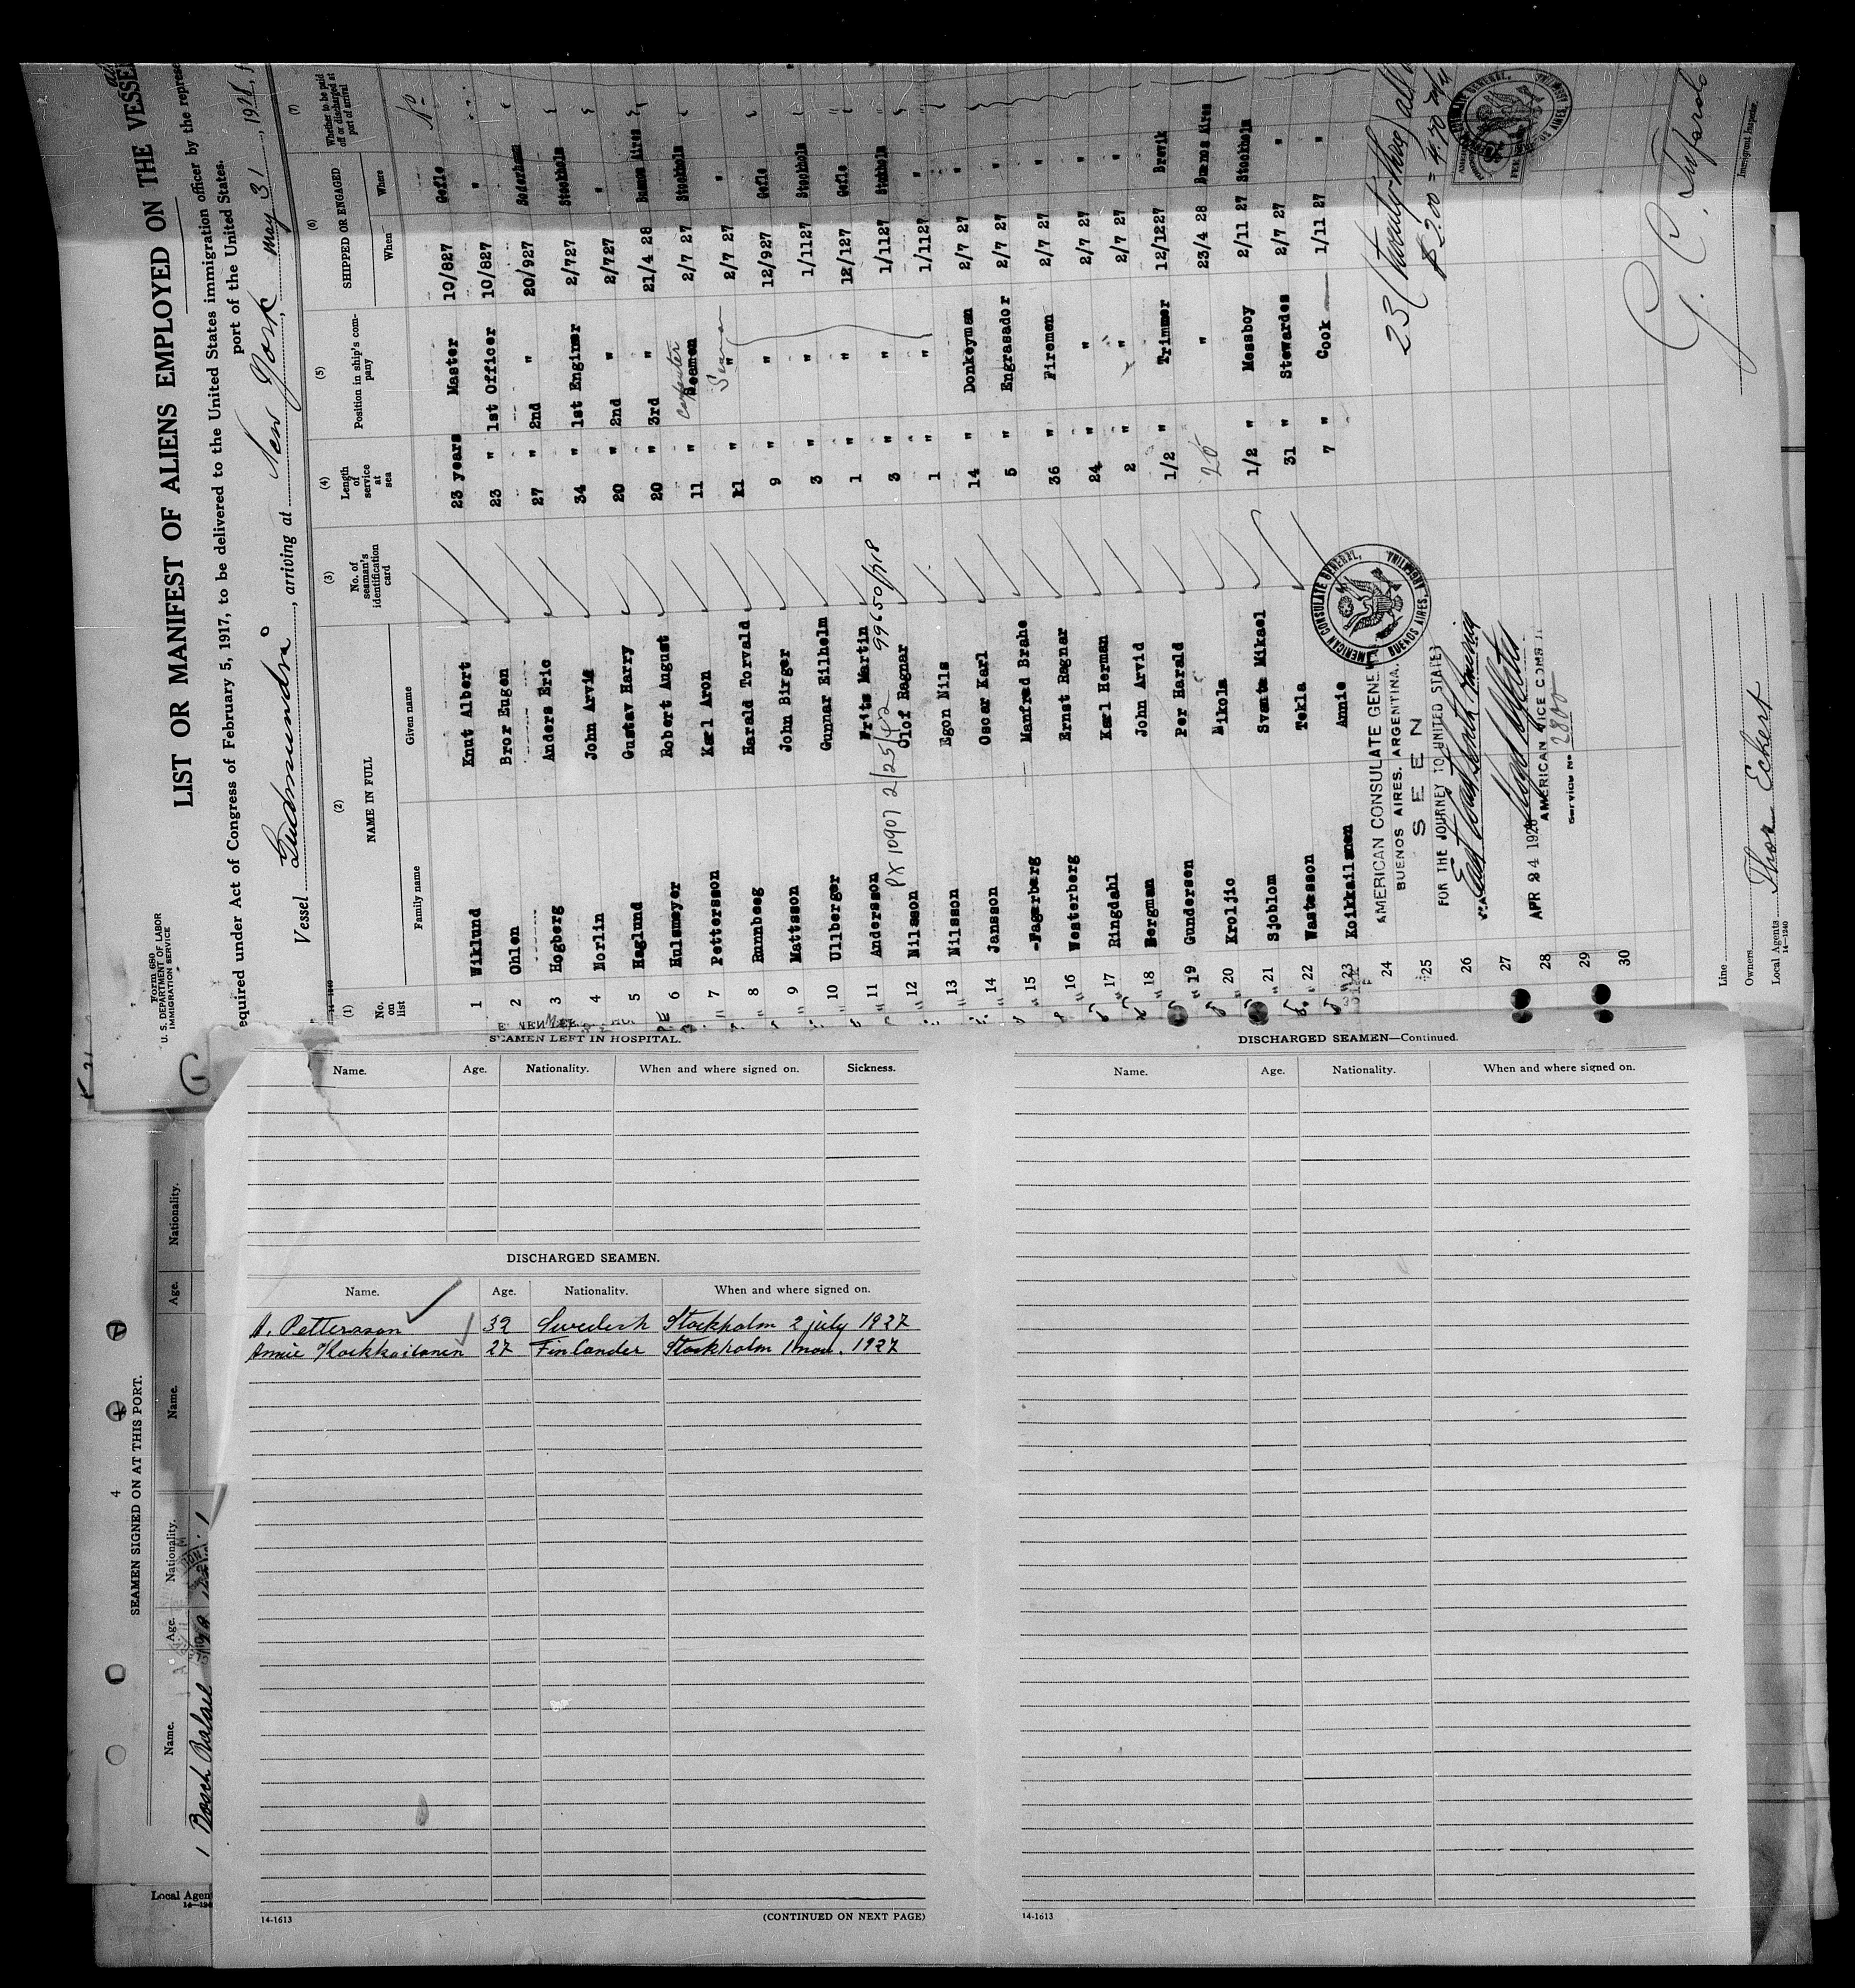 Form 680
U. S. DEPARTMENT OF LABOR
IMMIGRATION SERVICE
LIST OR MANIFEST OF ALIENS EMPLOYED ON THE VESSEL
equired under Act of Congress of February 5, 1917, to be delivered to the United States immigration officer by the repres
port of the United States.
Vessel Gudmundra, arriving at New York, May 31, 1928, f
(1) (2) (3) (4) (5) (6) (7)
No. on list NAME IN FULL No. of seaman's identification card Length of service at sea Position in ship's company SHIPPED OR ENGAGED Whether to be paid off or discharged at port of arrival
Family name Given name When Where
1 Wiklund Knut Albert 23 years Master 10/827 Gefle No
2 Ohlen Bror Eugen 23 " 1st Officer 10/827 "
3 Hogberg Anders Eric 27 " 2nd " 20/927 Soderhamn
4 Norlin John Arvid 34 " 1st Enginer 2/727 Stockholm
5 Haglund Gustav Harry 20 " 2nd " 2/727 "
6 Hulsmeyer Robert August 20 " 3rd " 21/4 28 Buenos Aires
7 Pettersson Karl Aron 11 " carpenter Seamen 2/7 27 Stockholm
8 Runnbeeg Harald Torvald 11 " " 2/7 27 "
9 Mattsson John Birger 9 " " 12/927 Gefle
10 Ullberger Gunnar Eilhelm 3 " " 1/1127 Stockholm
11 Andersson Frits Martin 1 " " 12/127 Gefle
PX 10907 2/25/42 99650/718
12 Nilsson Olof Ragnar 3 " " 1/1127 Stokholm
13 Nilsson Egon Nils 1 " " 1/1127 "
14 Jansson Oscar Karl 14 " Donkeyman 2/7 27 "
15 -Fagerberg Manfred Brahe 5 " Engrasador 2/7 27 "
16 Westerberg Ernst Ragnar 36 " Firemen 2/7 27 "
17 Ringdahl Karl Herman 24 " " 2/7 27 "
18 Bergman John Arvid 2 " " 2/7 27 "
19 Gundersen Per Harald 1/2 " Trimmer 12/1227 Brevik
20 Kroljic Nikola 20 " 23/4 28 Buenos Aires
21 Sjoblom Svante Mikael 1/2 " Messboy 2/11 27 Stockholm
22 Wastesson Tekla 31 " Stewardes 2/7 27 "
23 Koikkailanen Annie 7 " Cook 1/11 27 "
24
25
26
27
28
29
30
AMERICAN CONSULATE GENE
BUENOS AIRES, ARGENTINA.
S E E N
FOR THE JOURNEY TO UNITED STATES
APR 24 1928
AMERICAN VICE CONS
Service No 2800
AMERICAN CONSULATE GENERAL,
BUENOS AIRES,
23 (twenty-three)
$2.00 = 4.70 m/n
Line
Owners
Local Agents Thor Eckert
14-1240
Immigrant Inspector.
SEAMEN LEFT IN HOSPITAL.
Name. Age. Nationality. When and where signed on. Sickness.
DISCHARGED SEAMEN.
Name. Age. Nationality. When and where signed on.
A. Pettersson 32 Swedish Stockholm 2 july 1927
Annie Koikkailanen 27 Finlander Stockholm 1 nov. 1927
14-1613
(CONTINUED ON NEXT PAGE)
DISCHARGED SEAMEN—Continued.
Name. Age. Nationality. When and where signed on.
14-1613
4
SEAMEN SIGNED ON AT THIS PORT.
Name. Age. Nationality. Name. Age. Nationality.
1 Bosch Rafael
Local Agen